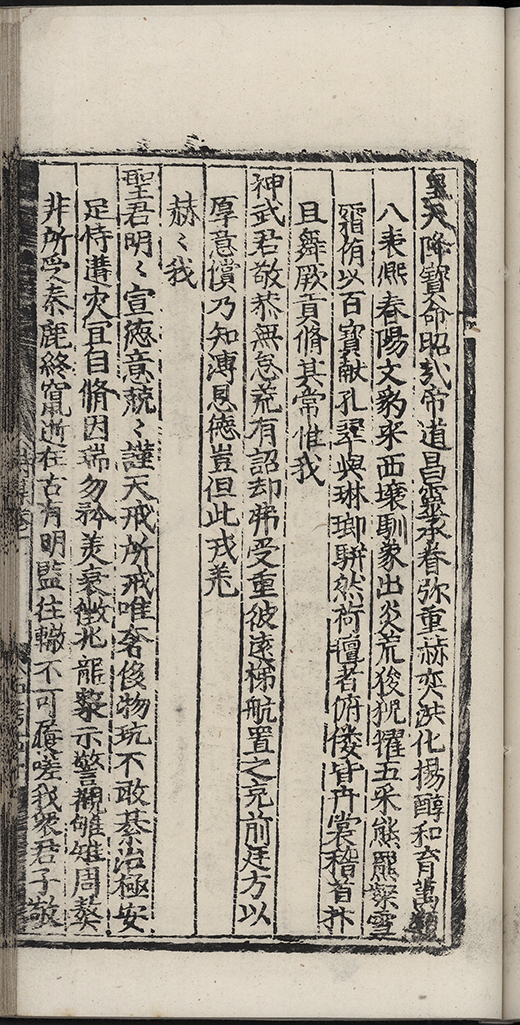 皇天降寳命昭哉帝道昌靈承眷弥重赫奕洪化揚醇和育萬類
八表熈春陽文豹来西壤馴象出炎荒狻猊耀五采熊羆粲雪
霜侑以百寳献孔翠與琳瑯駢然荷氊者俯僂皆卉裳稽首抃
且舞厥貢脩其常惟我
神武君敬恭無怠荒有詔却弗受重彼遠梯航置之充前廷方以
厚意償乃知溥恩德豈但此戎羌
赫〻我
聖君明〻宣德意兢〻謹天戒所戒唯奢侈物玩不敢綦治極安
足恃遘灾宜自脩因瑞勿矜羙衰徴兆龍漦示警觀雊雉周獒
非所受秦鹿終竄逝在古有明監往轍不可嗟我衆君子敬